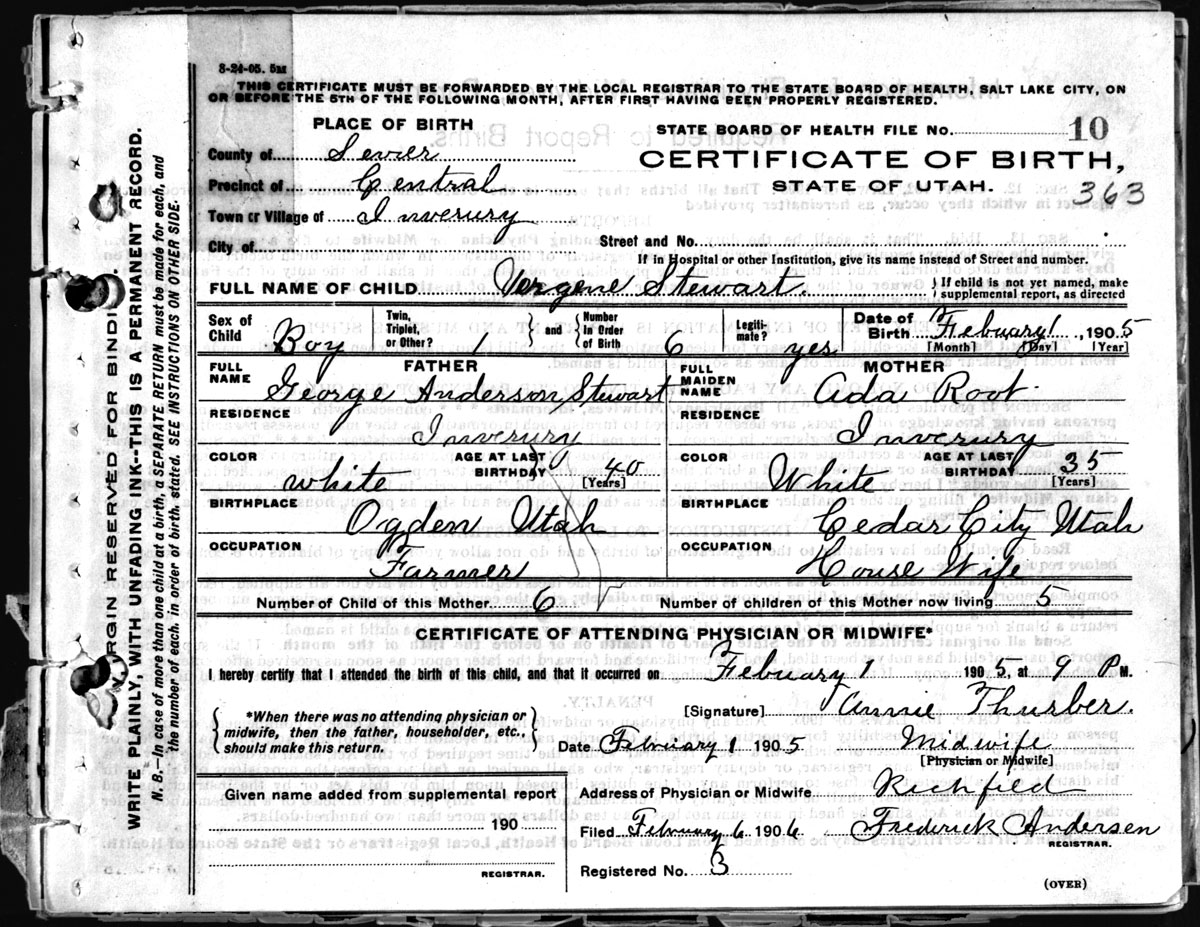 8-24-05. 5M
THIS CERTIFICATE MUST BE FORWARDED BY THE LOCAL REGISTRAR TO THE STATE BOARD OF HEALTH, SALT LAKE CITY, ON
OR BEFORE THE 5TH OF THE FOLLOWING MONTH, AFTER FIRST HAVING BEEN PROPERLY REGISTERED.
PLACE OF BIRTH
STATE BOARD OF HEALTH FILE No. 10
County of Sevier
CERTIFICATE OF BIRTH,
Precinct of Central
STATE OF UTAH. 363
Town or Village of Inverury
City of
Street and No.
If in Hospital or other Institution, give its name instead of Street and number.
FULL NAME OF CHILD Vergene Stewart. } If child is not yet named, make supplemental report, as directed
Sex of Child Boy Twin, Triplet, or Other? 1 } and { Number in Order of Birth 6 Legiti- mate? yes Date of Birth February 1, 1905
[Month] [Day] [Year]
FATHER
FULL NAME George Anderson Stewart
MOTHER
FULL MAIDEN NAME Ada Root
RESIDENCE Inverury
RESIDENCE Inverury
COLOR white AGE AT LAST BIRTHDAY 40 [Years]
COLOR White AGE AT LAST BIRTHDAY 35 [Years]
BIRTHPLACE Ogden Utah
BIRTHPLACE Cedar City Utah
OCCUPATION Farmer
OCCUPATION House Wife
Number of Child of this Mother 6 Number of children of this Mother now living 5
CERTIFICATE OF ATTENDING PHYSICIAN OR MIDWIFE*
I hereby certify that I attended the birth of this child, and that it occurred on Febuary 1 1905, at 9 P M.
{ *When there was no attending physician or midwife, then the father, householder, etc., should make this return. }
[Signature] Annie Thurber.
Date February 1 1905 Midwife
[Physician or Midwife]
Given name added from supplemental report
190
REGISTRAR.
Address of Physician or Midwife Richfield
Filed February 6 1906 Frederick Andersen
REGISTRAR.
Registered No. 3
(OVER)
MARGIN RESERVED FOR BINDING.
WRITE PLAINLY, WITH UNFADING INK--THIS IS A PERMANENT RECORD.
N. B.--In case of more than one child at a birth, a SEPARATE RETURN must be made for each, and
the number of each, in order of birth, stated. SEE INSTRUCTIONS ON OTHER SIDE.